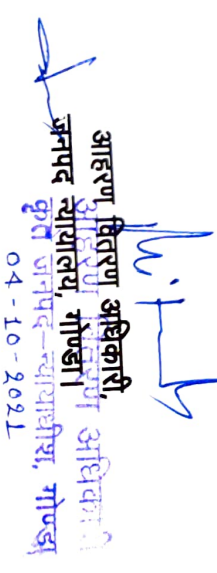 आहरण वितरण अधिकारी,
जनपद न्यायालय, गोण्डा।
आहरण वितरण अधिकारी
कृते जनपद-न्यायाधीश, गोण्डा
04-10-2021